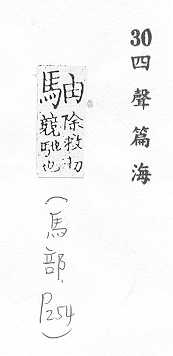 30 四聲篇海
駎
除救切
競馳也
(馬部, P254)